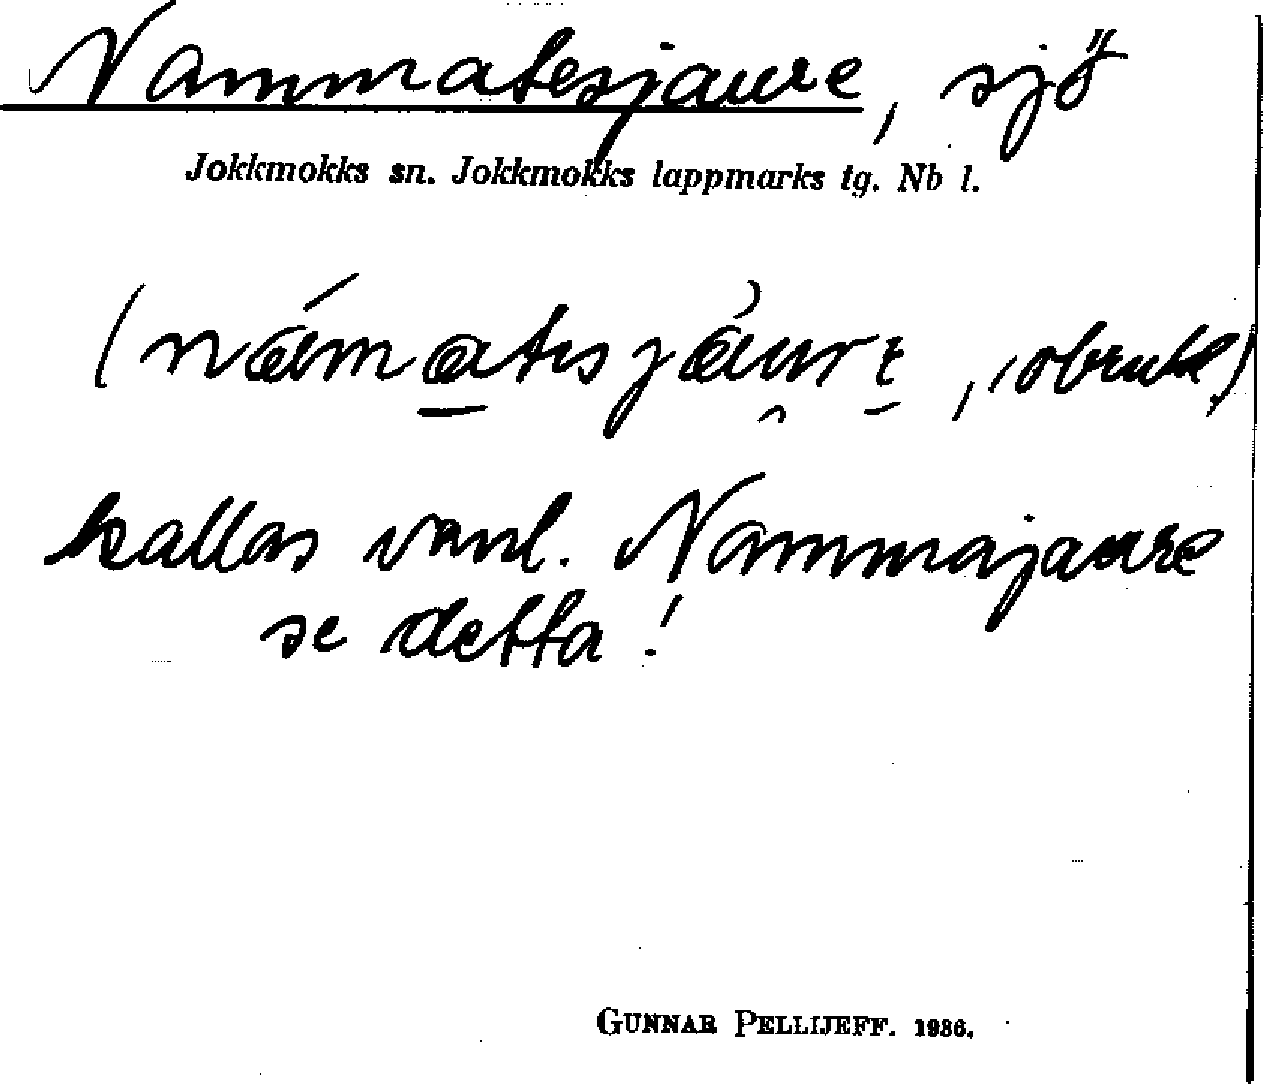 Nammatesjaure, sjö
Jokkmokks sn. Jokkmokks lappmarks tg. Nb l.
kallas vanl. Nammajaure
se detta!
GUNNAR PELLIJEFF. 1936.